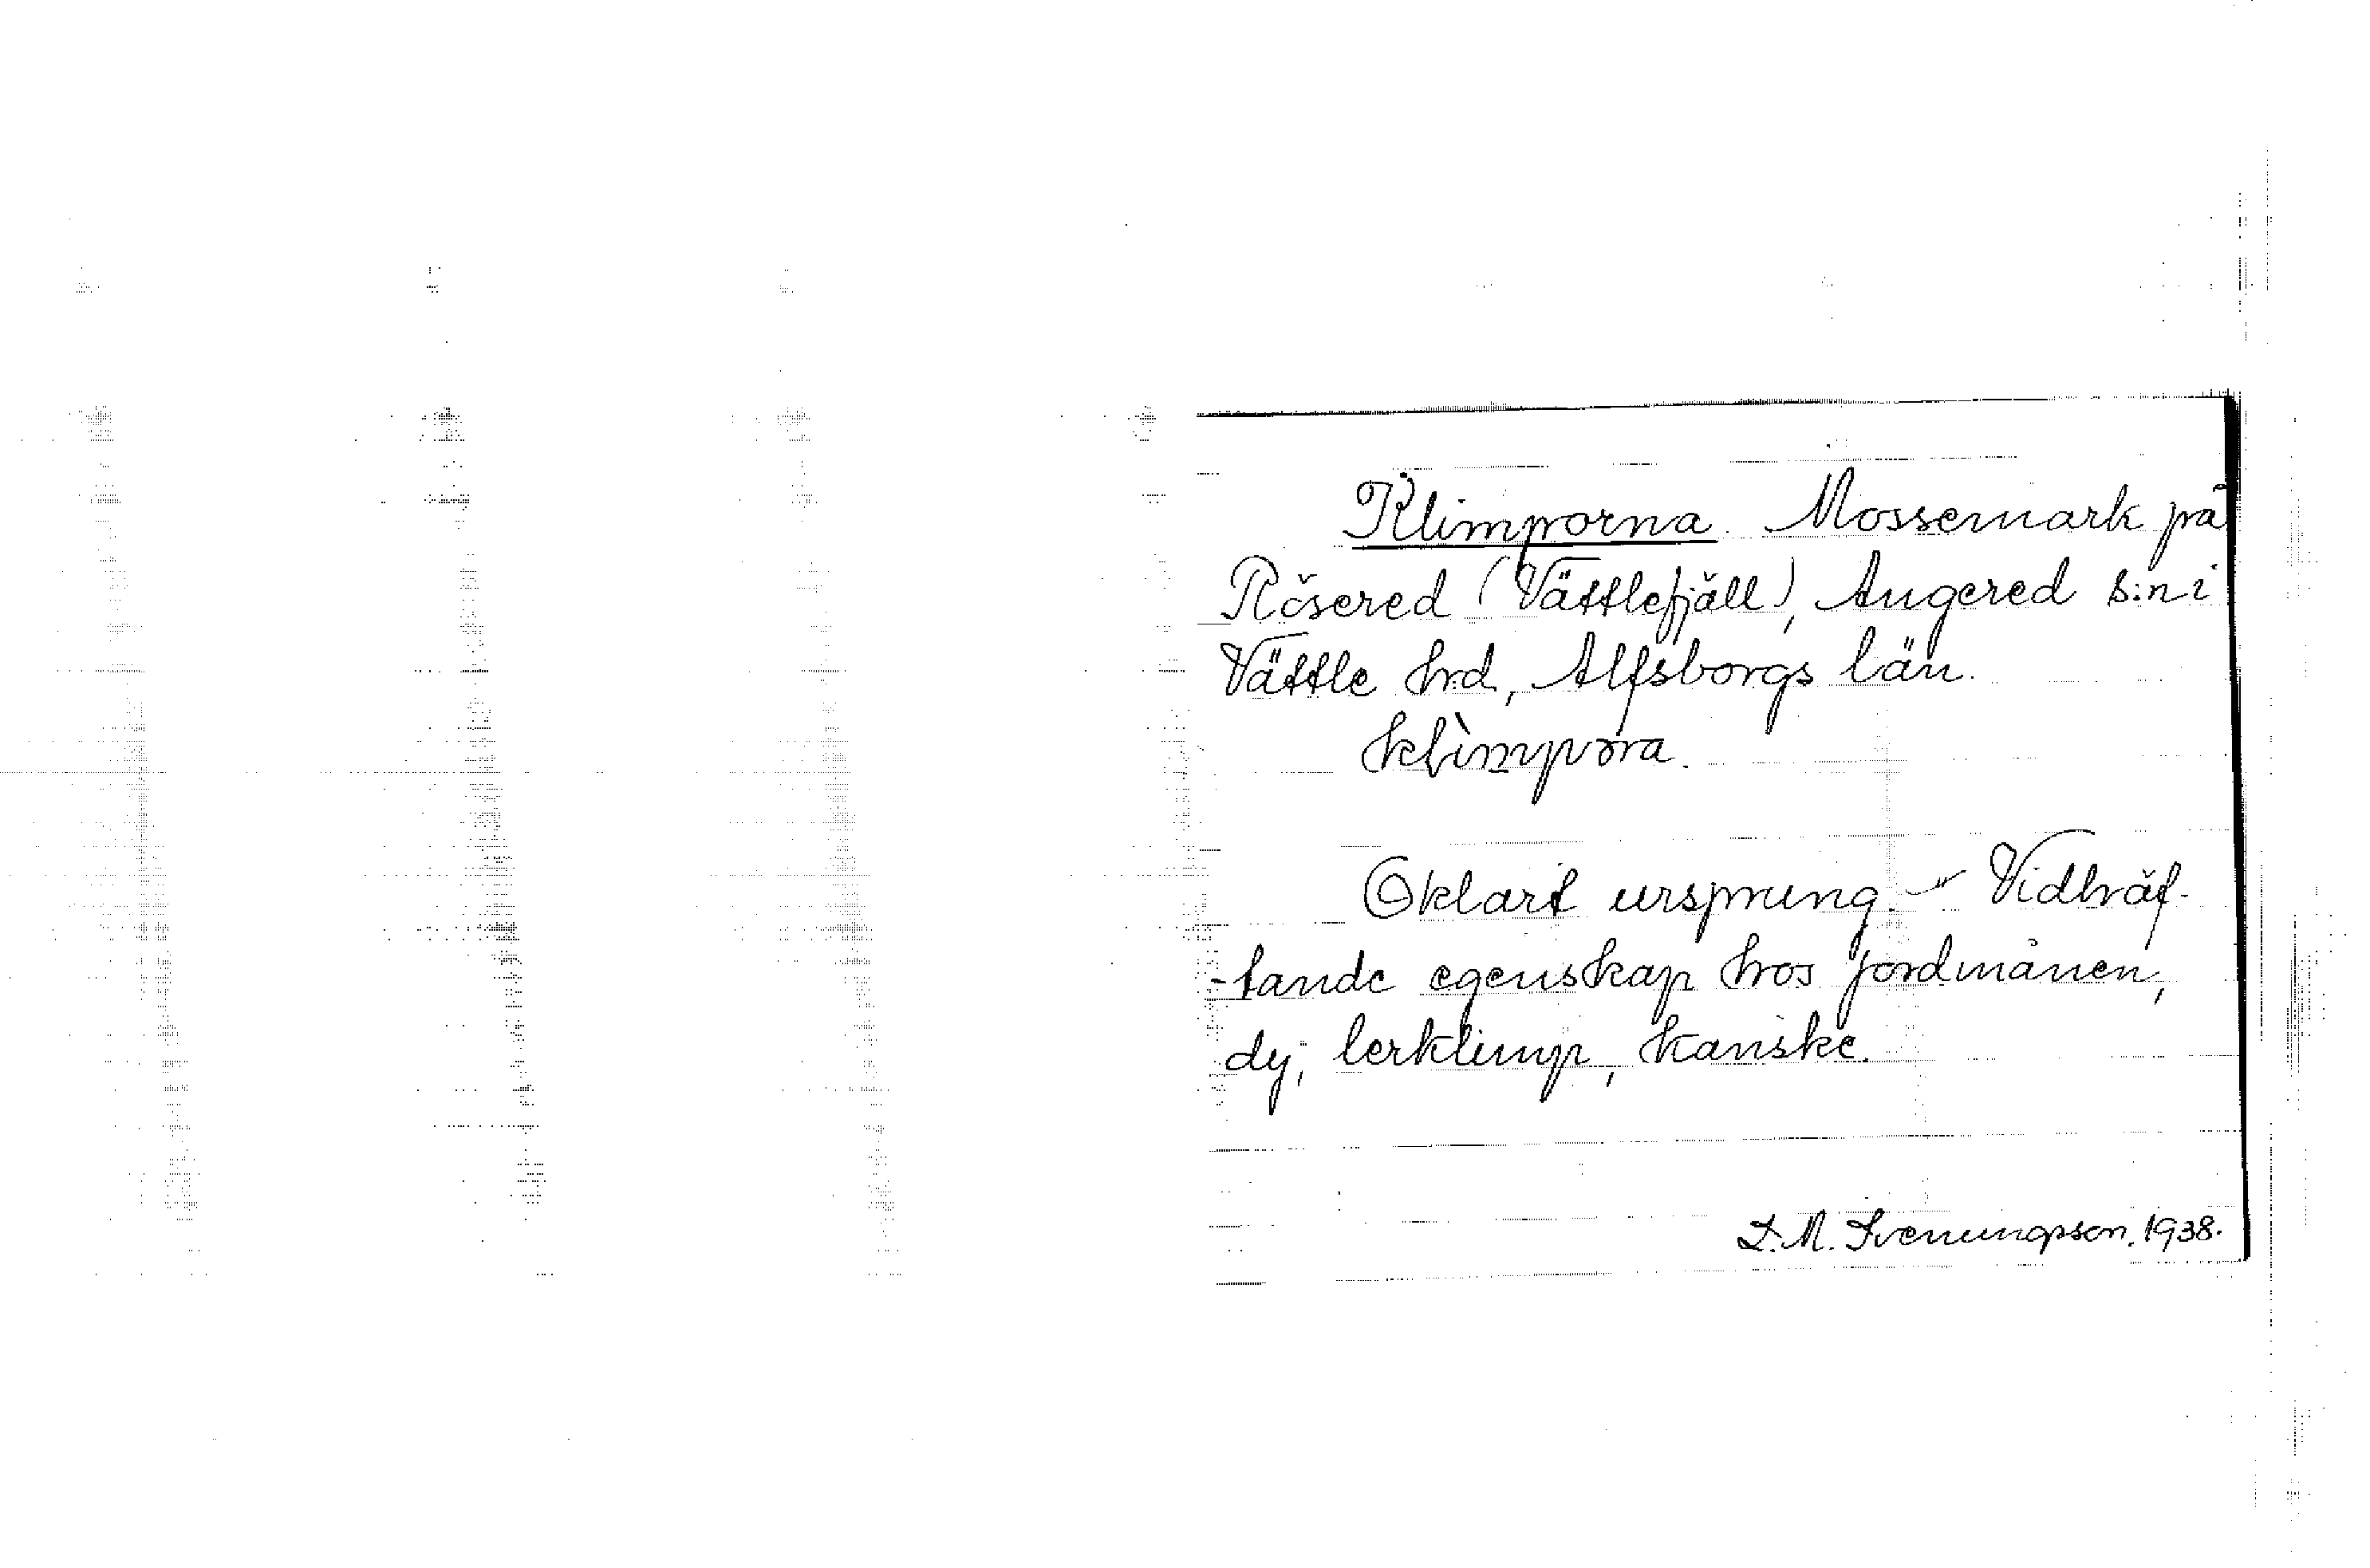 Klimporna. Mossemark på
Rösered (Vättlefjäll), Angered s:n i
Vättle hrd, Alfsborgs län.
klìmpơra.
Oklart ursprung. - Vidhäf-
-tande egenskap hos jordmånen,
dy, lerklimp, kanske.
D. M. Svenungsson, 1938.